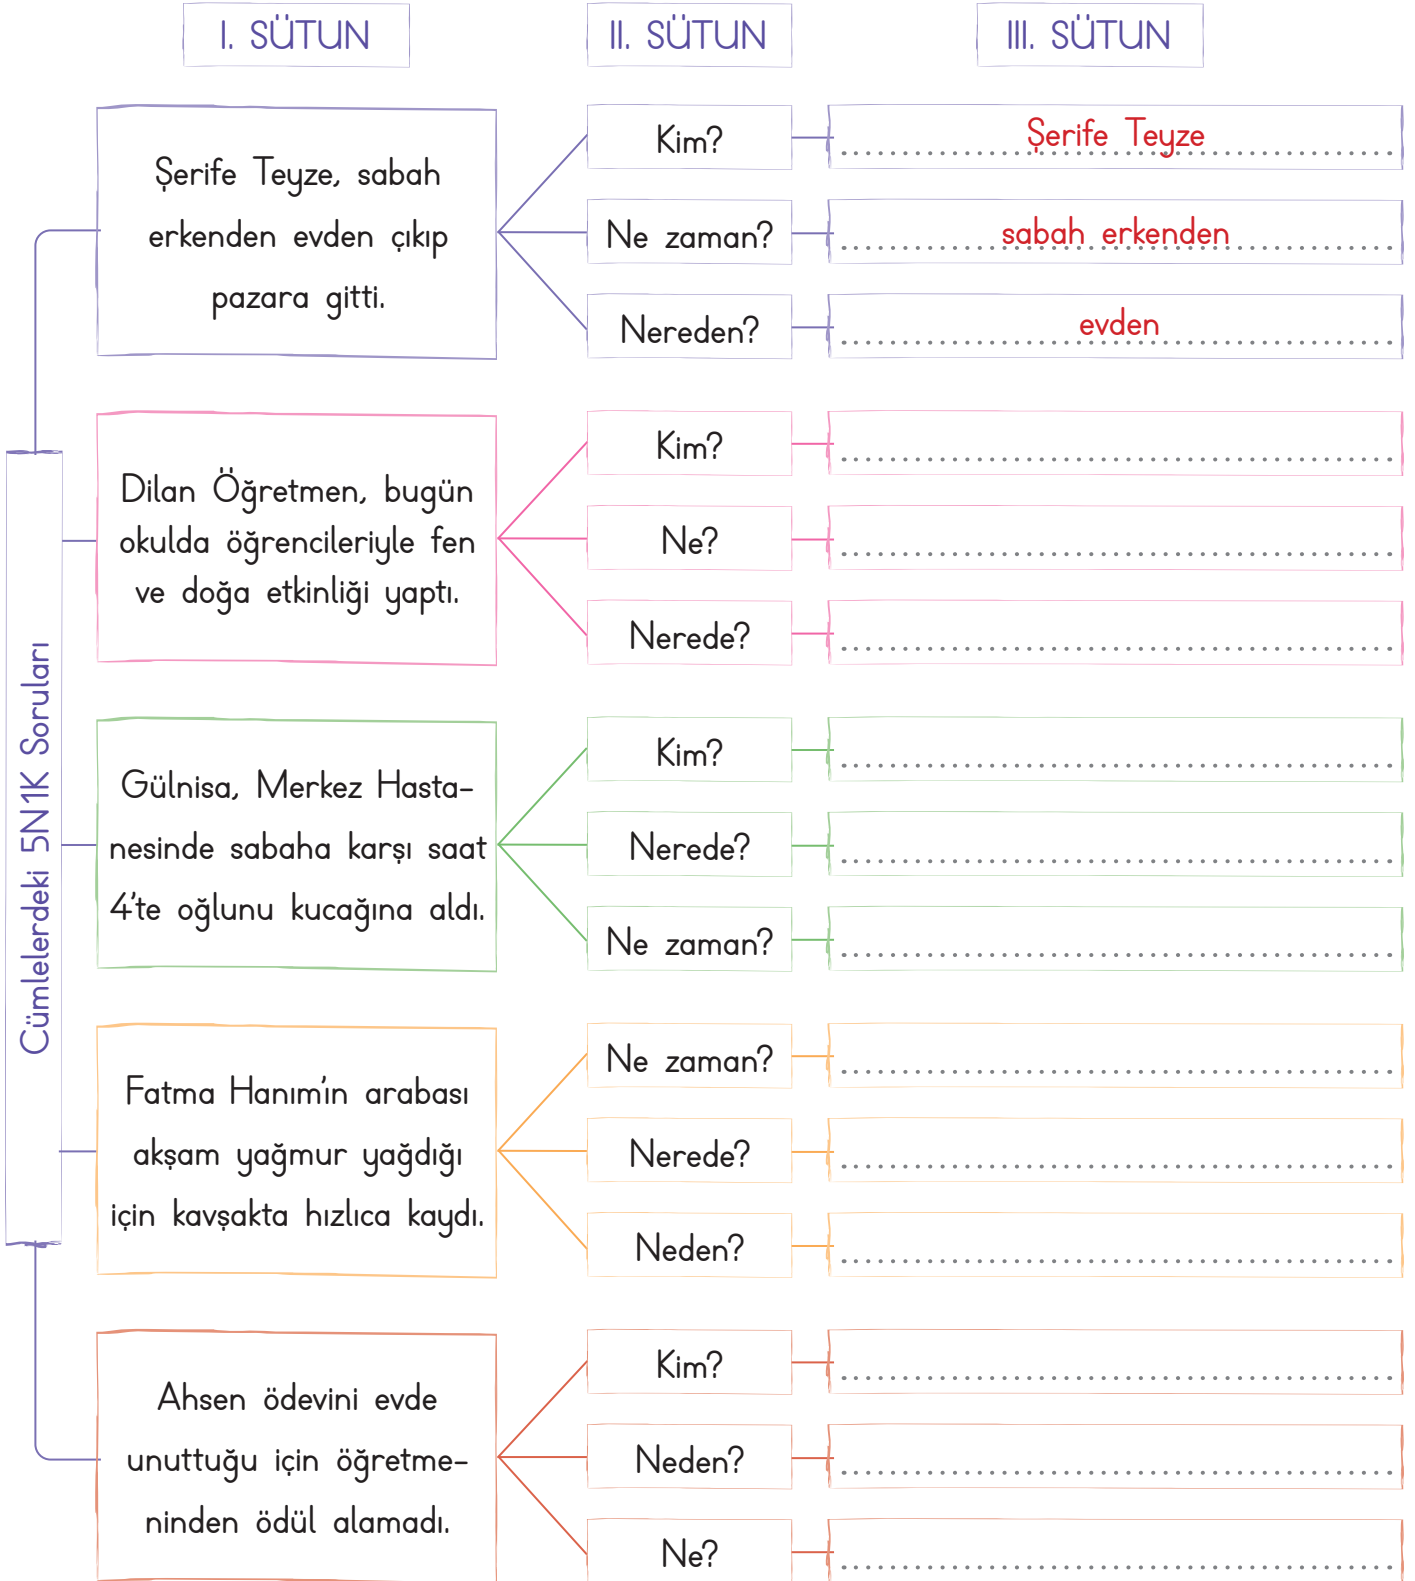 I. SÜTUN
II. SÜTUN
III. SÜTUN
Cümlelerdeki 5N1K Soruları
Şerife Teyze, sabah
erkenden evden çıkıp
pazara gitti.
Kim?
Şerife Teyze
Ne zaman?
sabah erkenden
Nereden?
evden
Dilan Öğretmen, bugün
okulda öğrencileriyle fen
ve doğa etkinliği yaptı.
Kim?
Ne?
Nerede?
Gülnisa, Merkez Hasta-
nesinde sabaha karşı saat
4'te oğlunu kucağına aldı.
Kim?
Nerede?
Ne zaman?
Fatma Hanım'ın arabası
akşam yağmur yağdığı
için kavşakta hızlıca kaydı.
Ne zaman?
Nerede?
Neden?
Ahsen ödevini evde
unuttuğu için öğretme-
ninden ödül alamadı.
Kim?
Neden?
Ne?